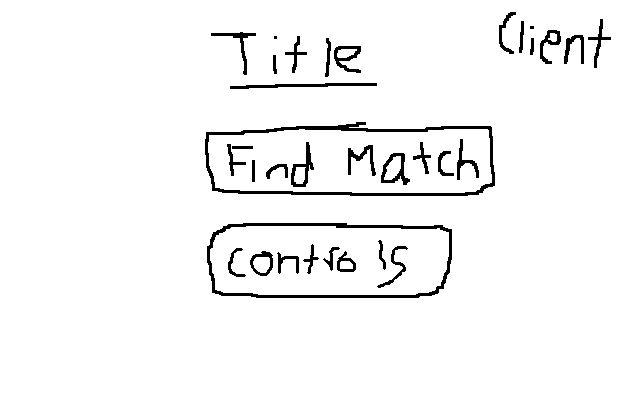 Title
Client
Find Match
controls